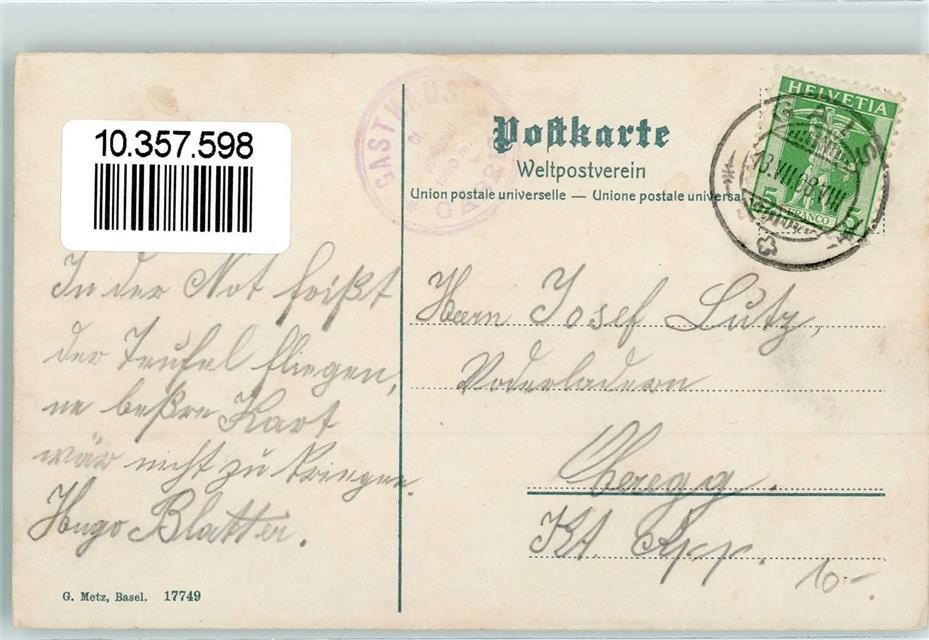 10.357.598
GASTHAUS
Postkarte
Weltpostverein
Union postale universelle — Unione postale universal
HELVETIA
5 FRANCO 5
13.VIII.08.VIII
In der Not frißt
der Teufel fliegen,
ne beßre Kart
wär nicht zu kriegen.
Hugo Blatter.
Herrn Josef Lutz,
Voderladern
Oberegg.
Kt. App.
10-
G. Metz, Basel. 17749